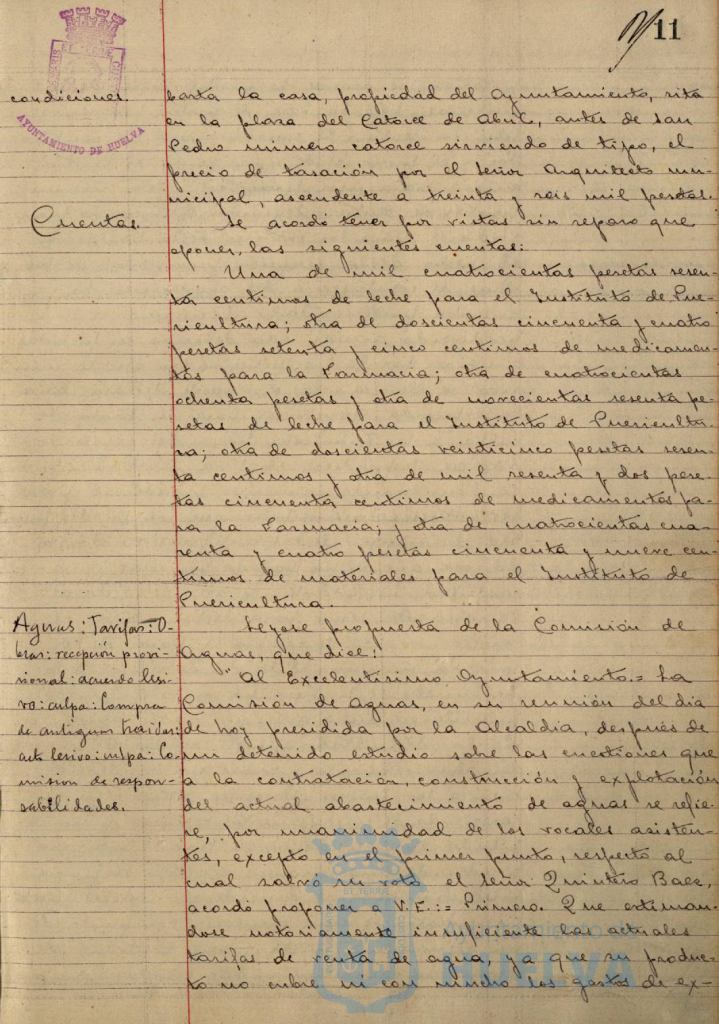 11
AYUNTAMIENTO DE HUELVA
condiciones.
basta la casa, propiedad del Ayuntamiento, sita
en la plaza del Catorce de Abril, antes de San
Pedro número catorce sirviendo de tipo, el
precio de tasación por el Señor Arquitecto mu-
nicipal, ascendente a treinta y seis mil pesetas.
Cuentas.
Se acordó tener por vistas sin reparo que
oponer, las siguientes cuentas:
Una de mil cuatrocientas pesetas sesen-
ta centimos de leche para el Instituto de Pue-
ricultura; otra de doscientas cincuenta y cuatro
pesetas setenta y cinco centimos de medicamen-
tos para la Farmacia; otra de cuatrocientas
ochenta pesetas y otra de novecientas sesenta pe-
setas de leche para el Instituto de Puericultu-
ra; otra de doscientas veinticinco pesetas sesen-
ta centimos y otra de mil sesenta y dos pese-
tas cincuenta centimos de medicamentos pa-
ra la Farmacia; y otra de cuatrocientas cua-
renta y cuatro pesetas cincuenta y nueve cen-
timos de materiales para el Instituto de
Puericultura.
Aguas: Tarifas: O-
bras: recepción provi-
sional: acuerdo lesi-
vo: culpa: Compra
de antiguas traidas:
acto lesivo: culpa: Co-
mision de respon-
sabilidades.
Leyose propuesta de la Comisión de
Aguas, que dice:
"Al Excelentisimo Ayuntamiento.= La
Comisión de Aguas, en su reunión del dia
de hoy presidida por la Alcaldia, después de
un detenido estudio sobre las cuestiones que
a la contratación, construcción y explotación
del actual abastecimiento de aguas se refie-
re, por unanimidad de los vocales asisten-
tes, excepto en el primer punto, respecto al
cual salvó su voto el Señor Quintero Baez,
acordó proponer a V. E.:= Primero. Que estiman-
dose notoriamente insuficiente las actuales
tarifas de venta de agua, ya que su produc-
to no cubre ni con mucho los gastos de ex-
HUELVA